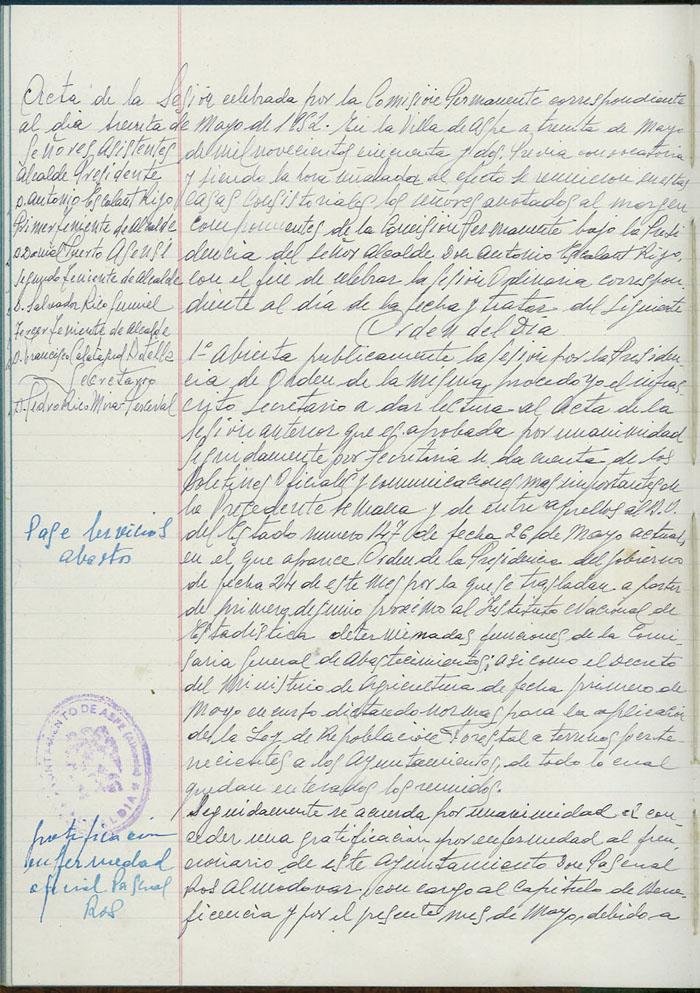 Acta de la Sesión celebrada por la Comisión Permanente correspondiente
al dia treinta de Mayo de 1952. En la Villa de Aspe a treinta de Mayo
Señores Asistentes
Alcalde Presidente
D. Antonio Escalant Rigo
Primer Teniente de Alcalde
D. Daniel Puerto Asensi
Segundo Teniente de Alcalde
D. Salvador Rico
Tercer Teniente de Alcalde
D. Francisco
Secretario
D. Pedro Rico
de mil novecientos cincuenta y dos. Previa convocatoria
y siendo la hora señalada al efecto se reunieron en estas
Casas Consistoriales los señores anotados al margen
componentes de la Comisión Permanente bajo la Presi
dencia del señor Alcalde Don Antonio Escalant Rigo,
con el fin de celebrar la Sesión Ordinaria correspon
diente al dia de la fecha y tratar del siguiente
Orden del Dia
1º Abierta publicamente la Sesión por la Presiden
cia de Orden de la misma, procedo yo el infras
crito Secretario a dar lectura al Acta de la
Sesión anterior que es aprobada por unanimidad
Seguidamente por Secretaria se da cuenta de los
Boletines Oficiales y comunicaciones mas importantes de
la Precedente semana y de entre aquellos al B.O.
del Estado numero 147 de fecha 26 de Mayo actual,
en el que aparece Orden de la Presidencia del Gobierno
de fecha 24 de este mes por la que se trasladan a partir
de primero de Junio proximo al Instituto Nacional de
Estadistica determinadas funciones de la Comi
saria General de Abastecimientos; asi como el Decreto
del Ministerio de Agricultura de fecha primero de
Mayo en curso dictando normas para la aplicación
de la Ley de Repoblación Forestal a terrenos perte
necientes a los Ayuntamientos, de todo lo cual
quedan enterados los reunidos.
Pase Servicios
abastos
Seguidamente se acuerda por unanimidad el con
ceder una gratificación por enfermedad al fun
cionario de este Ayuntamiento Don Pascual
Ros Almodovar, con cargo al Capitulo de Bene
ficencia y por el presente mes de Mayo, debido a
gratificación
enfermedad
oficial Pascual
Ros
AYUNTAMIENTO DE ASPE (Alicante)
ALCALDIA